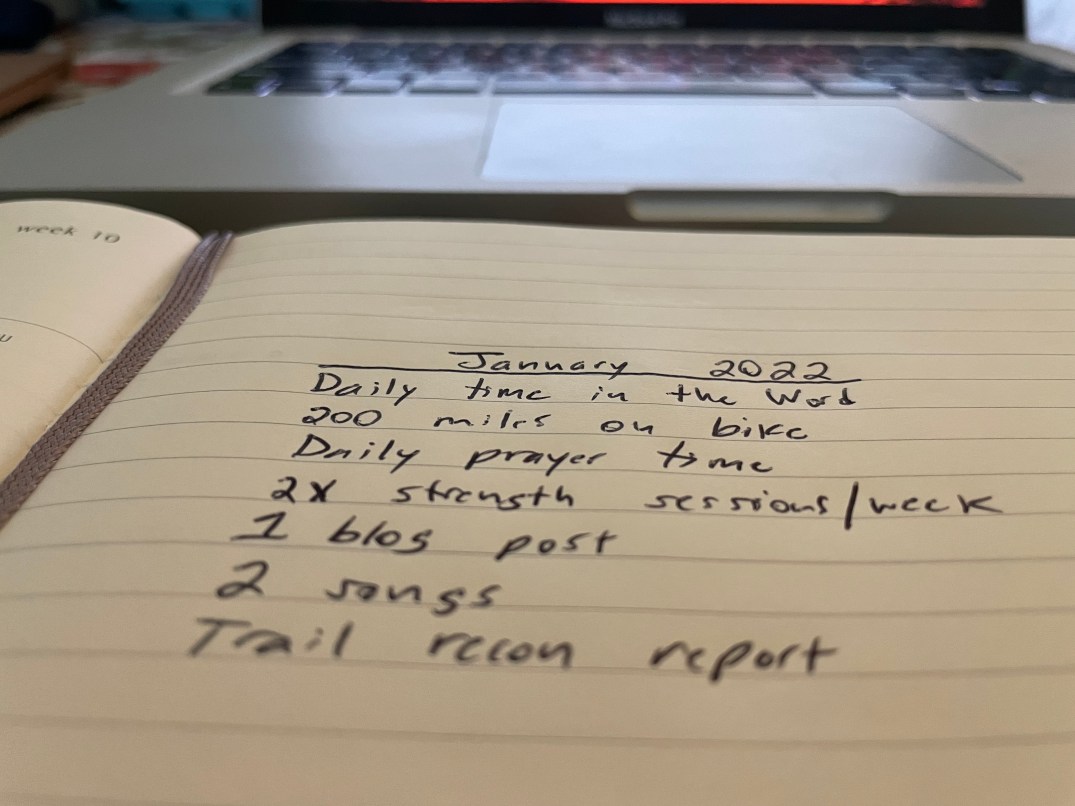 week 10
January 2022
Daily time in the Word
200 miles on bike
Daily prayer time
2X strength sessions/week
1 blog post
2 songs
Trail recon report